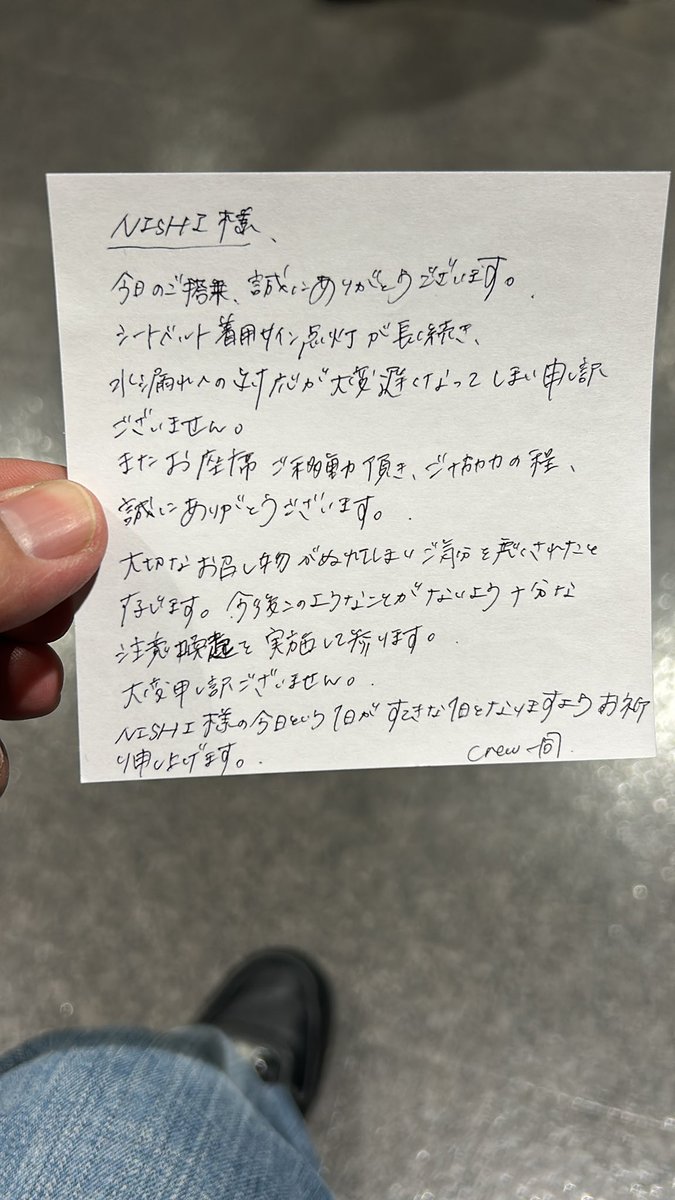 NISHI 様、
今日のご搭乗、誠にありがとうございます。
シートベルト着用サイン点灯が長く続き、
水漏れへの対応が大変遅くなってしまい申し訳
ございません。
またお座席ご移動頂き、ご協力の程、
誠にありがとうございます。
大切なお召し物がぬれてしまいご気分を悪くされたと
存じます。今後このようなことがないよう十分な
注意喚起を実施して参ります。
大変申し訳ございません。
NISHI 様の今日という1日がすてきな1日となりますようお祈
り申し上げます。 crew一同.